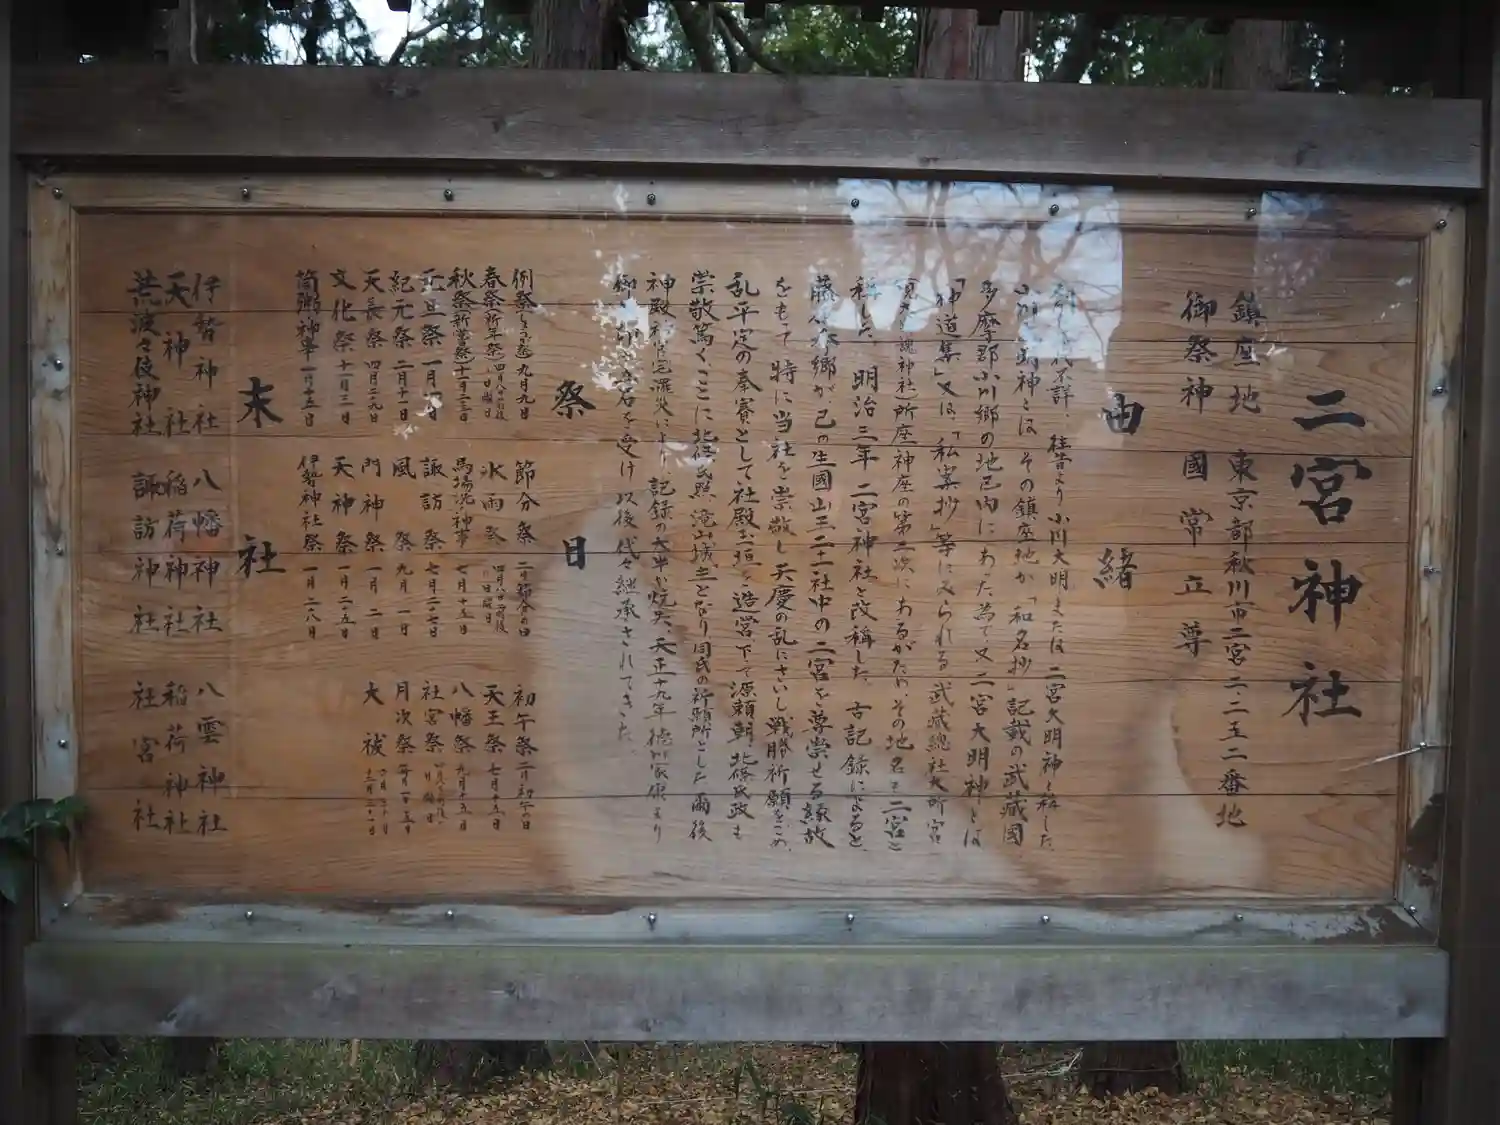 二宮神社
鎮座地 東京都秋川市二宮二二五二番地
御祭神 國常立尊
由緒
不詳、往昔より小川大明神または二宮大明神と称した。
小川 神とはその鎮座地が「和名抄」記載の武蔵國
多摩郡小川郷の地区内にあった為で又二宮大明神とは
「神道集」又は「私案抄」等に見られる武蔵總社六所宮
魂神社)所座神座の第二次にあるがため、その地名を二宮と
称した。明治三年二宮神社と改称した。古記録によると、
藤 秀郷が己の生國山王二十一社中の二宮を尊崇せる縁故
をもって特に当社を崇敬し天慶の乱にさいし戦勝祈願をこめ、
乱平定の奉賽として社殿玉垣を造営下て源頼朝、北條氏政も
崇敬篤く、ここに北條氏照、滝山城主となり同氏の祈願所とした爾後
神殿 罹災により記録の大半が焼失、天正十九年徳川家康より
御朱印 石を受け以後代々継承されてきた。
祭日
例祭 九月九日 節分祭 二月節分の日 初午祭 二月初午の日
春祭(祈年祭) 四月 日曜日 氷雨祭 四月八日前後の日曜日 天王祭 七月十五日
秋祭(新嘗祭)十一月二三日 馬場洗い神事 七月十五日 八幡祭 九月十五日
元旦祭 一月一日 諏訪祭 七月二七日 社宮祭
紀元祭 二月十一日 風祭 九月一日 月次祭 毎月一日十五日
天長祭 四月二九日 門神祭 一月二日 大祓 六月三十日 十二月三一日
文化祭 十一月三日 天神祭 一月二五日
筒粥神事 一月十五日 伊勢神社祭 一月二八日
末社
伊勢神社 八幡神社 八雲神社
天神社 稲荷神社 稲荷神社
荒波々伎神社 諏訪神社 社宮社